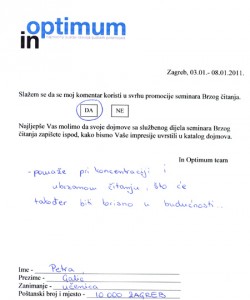 in optimum
Zagreb, 03.01.- 08.01.2011.
Slažem se da se moj komentar koristi u svrhu promocije seminara Brzog čitanja.
DA NE
Najljepše Vas molimo da svoje dojmove sa službenog dijela seminara Brzog
čitanja zapišete ispod, kako bismo Vaše impresije uvrstili u katalog dojmova.
In Optimum team
- pomaže pri koncentraciji i
ubrzanom čitanju, što će
također biti korisno u budućnosti..
Ime - Petra
Prezime -
Zanimanje - učenica
Poštanski broj i mjesto - 10 000 ZAGREB